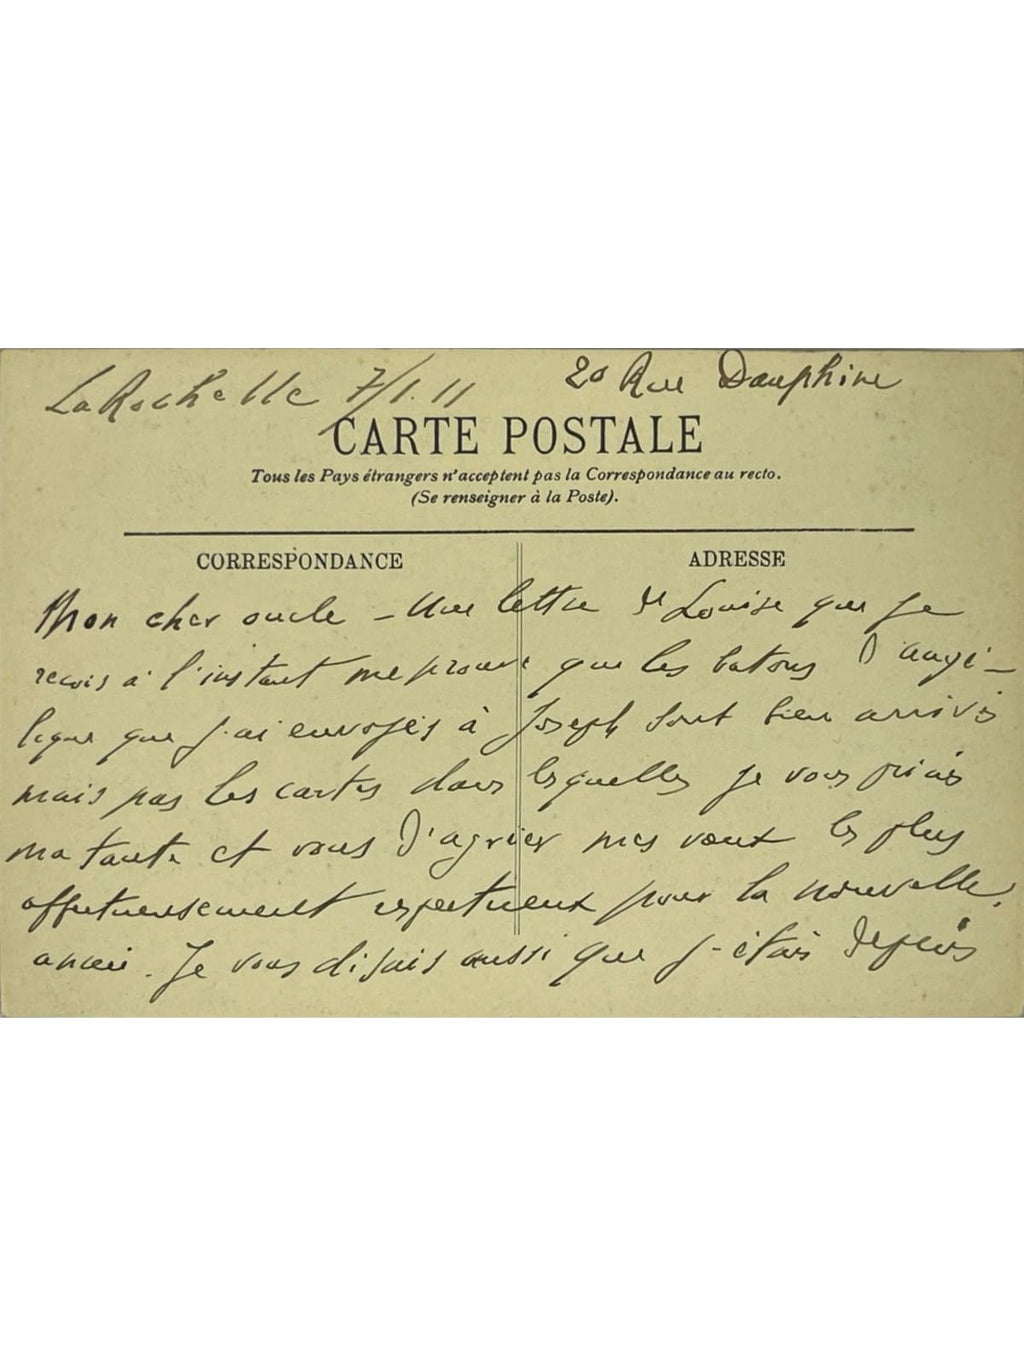 La Rochelle 7/1.11 20 Rue Dauphine
CARTE POSTALE
Tous les Pays étrangers n'acceptent pas la Correspondance au recto.
(Se renseigner à la Poste).
CORRESPONDANCE ADRESSE
Mon cher oncle - Une lettre de Louise que je
reçois à l'instant me prouve que les batons d'angé-
lique que j'ai envoyés à Joseph sont bien arrivés
mais pas les cartes dans lesquelles je vous priais
ma tante et vous d'agréer mes vœux les plus
affectueusement respectueux pour la nouvelle
année. Je vous disais aussi que j'étais depuis